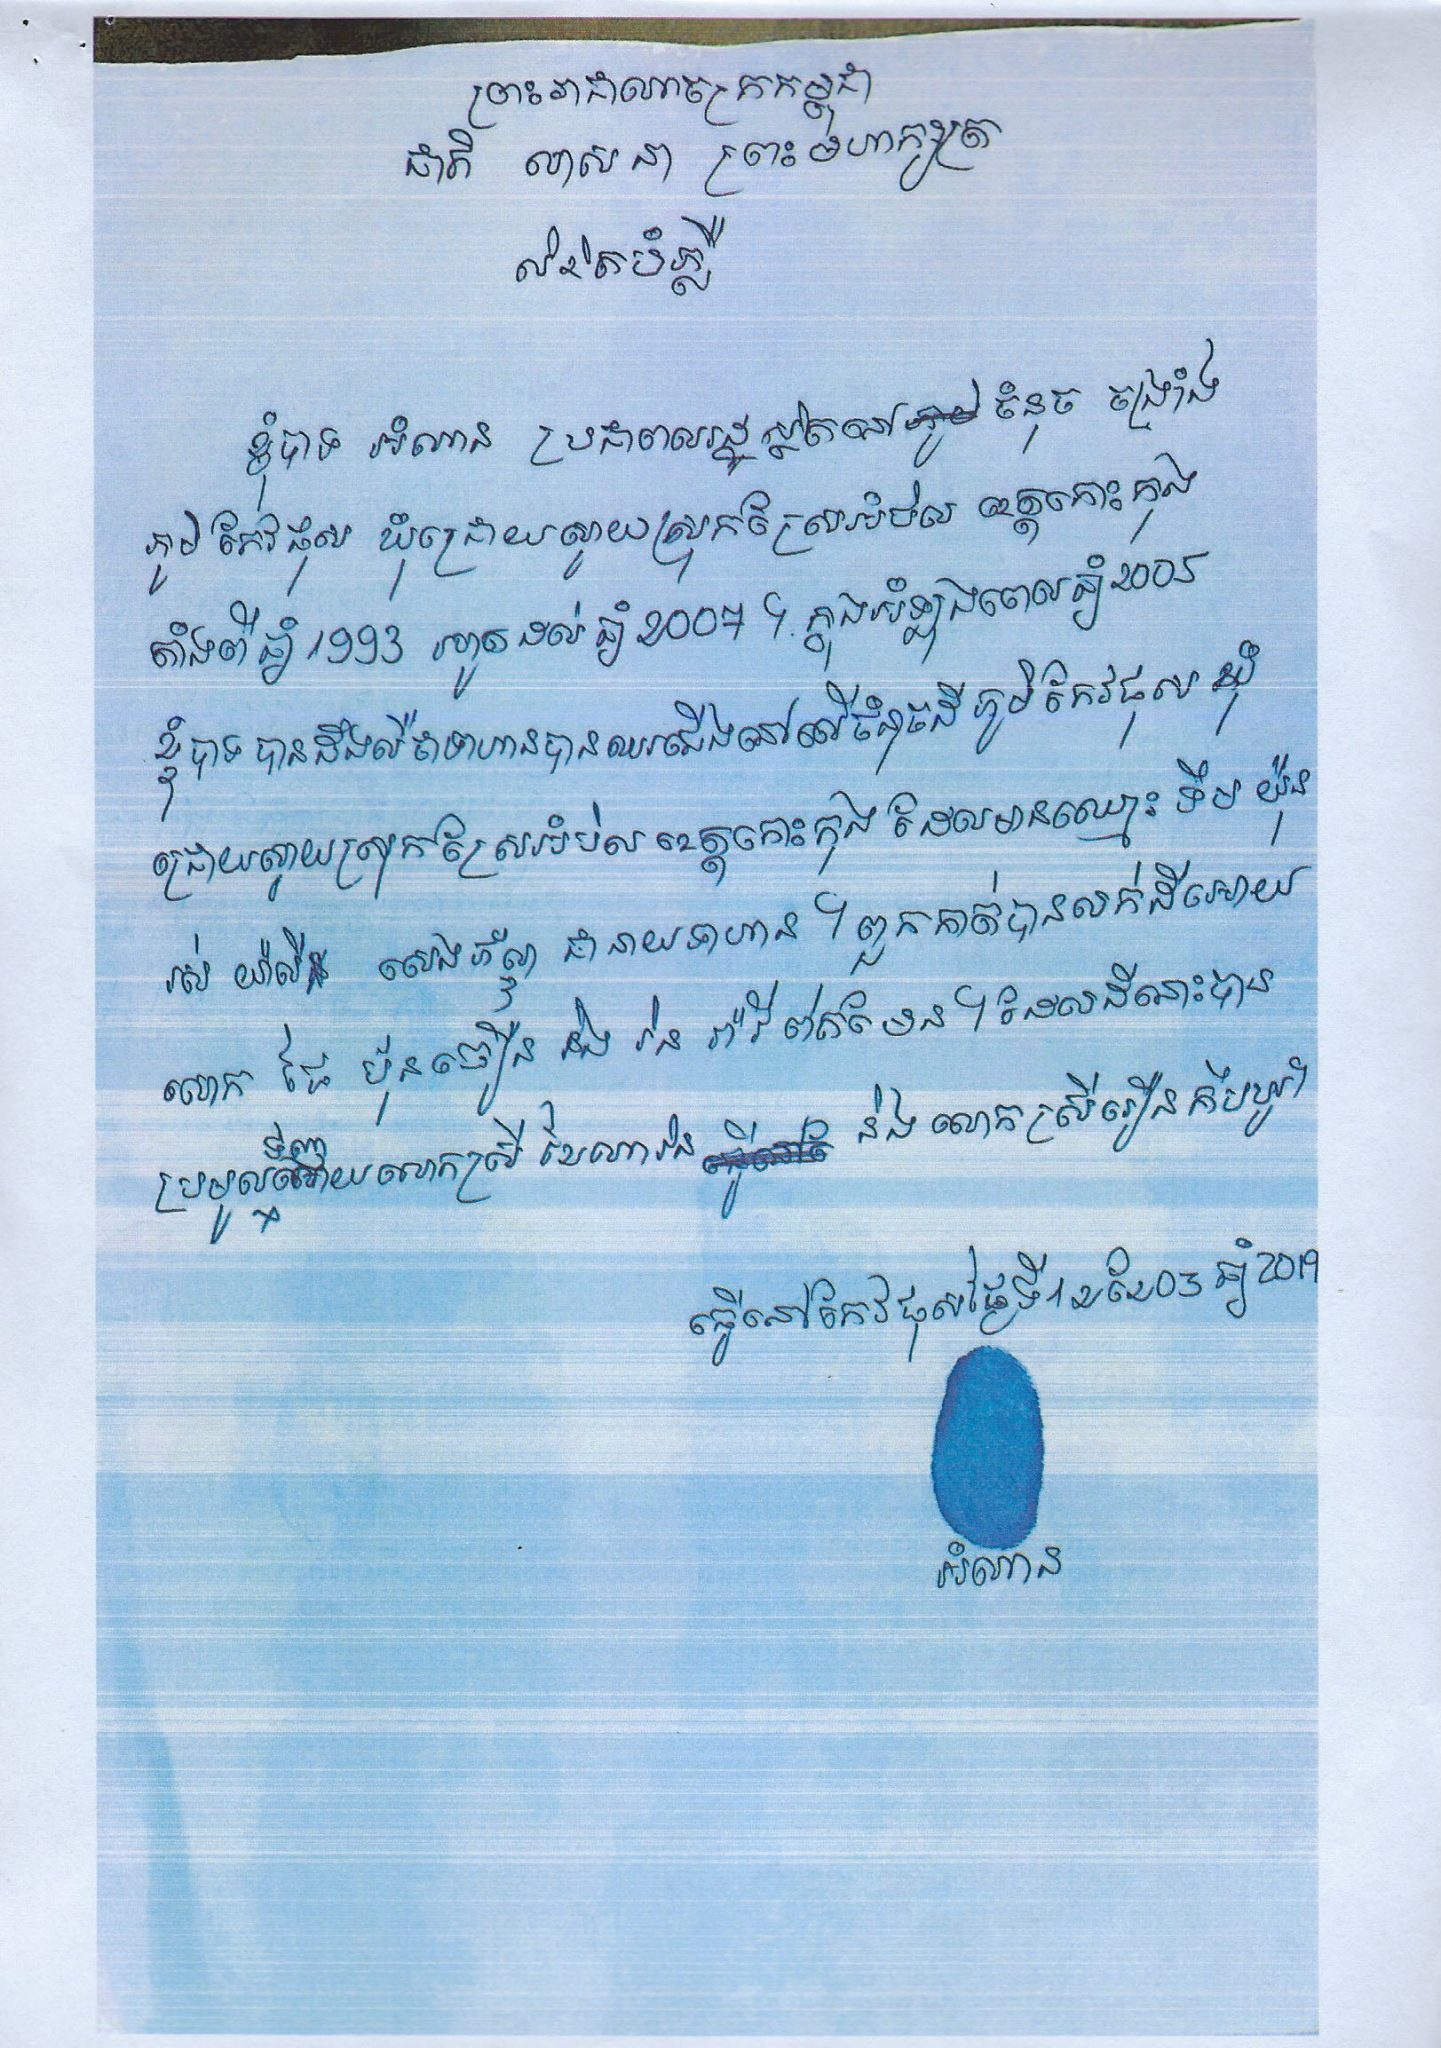 ព្រះរាជាណាចក្រកម្ពុជា
ជាតិ សាសនា ព្រះមហាក្សត្រ
លិខិតបំភ្លឺ
ខ្ញុំបាទ អំណាន ប្រជាពលរដ្ឋស្ថិតនៅ ចំនុច
ភូមិតែវផុស ឃុំជ្រោយស្វាយ ស្រុកស្រែអំបិល ខេត្តកោះកុង
តាំងពីឆ្នាំ 1993 រហូតដល់ឆ្នាំ 2007 ។ ក្នុងអំឡុងពេលឆ្នាំ 2005
ខ្ញុំបាទបានដឹងលឺថាទាហានបានឈរជើងនៅលើចំនុចដីភូមិតែវផុស ឃុំ
ជ្រោយស្វាយ ស្រុកស្រែអំបិល ខេត្តកោះកុង ដែលមានឈ្មោះ ទឹម យ៉ុន
រស់ សេងភ័ណ្ឌ ជានាយទាហាន ។ ពួកគាត់បានលក់ដីអោយ
លោក ង៉ែ ប៉ុនចឿន និង វ៉ន ។ ដែលដីនោះបាន
ប្រមូលទិញដោយលោកស្រី និង លោកស្រី
ធ្វើនៅតែវផុសថ្ងៃទី 12 ខែ 03 ឆ្នាំ 2019
អំណាន